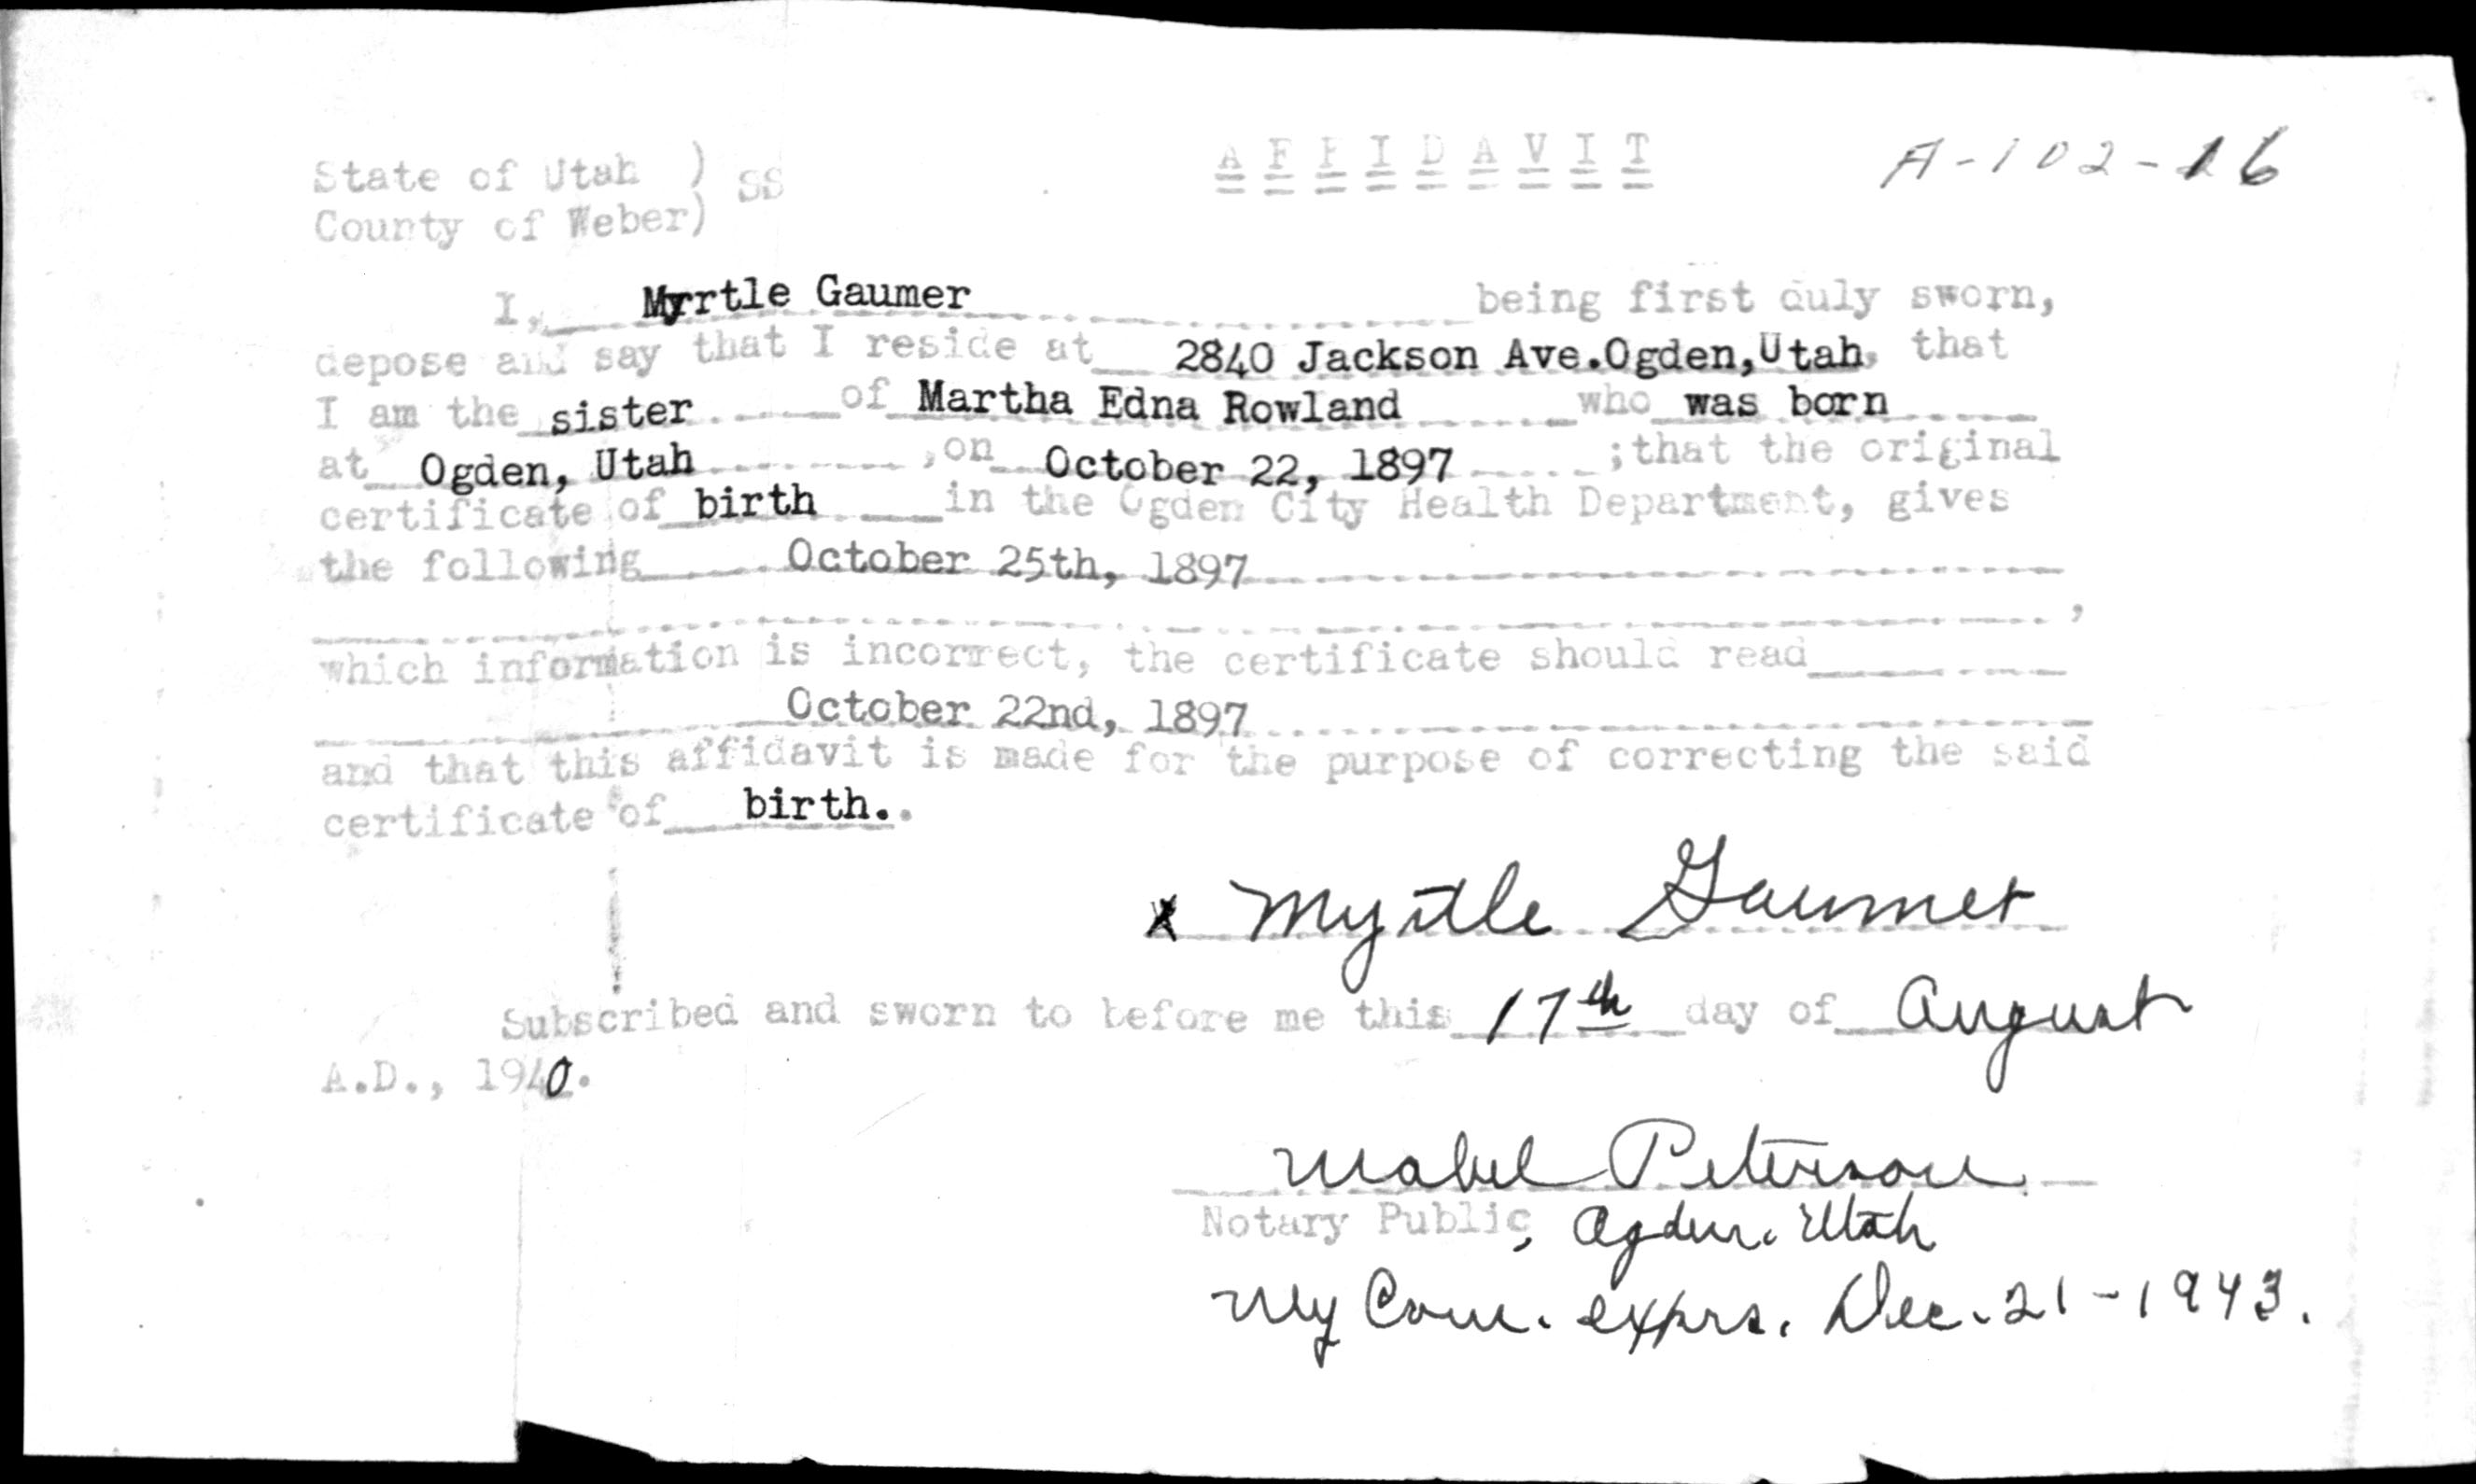 State of Utah ) SS
County of Weber)
A F F I D A V I T
A-102-16
I, Myrtle Gaumer being first duly sworn,
depose and say that I reside at 2840 Jackson Ave.Ogden,Utah, that
I am the sister of Martha Edna Rowland who was born
at Ogden, Utah ,on October 22, 1897 ;that the original
certificate of birth in the Ogden City Health Department, gives
the following October 25th, 1897
,
which information is incorrect, the certificate should read
October 22nd, 1897
and that this affidavit is made for the purpose of correcting the said
certificate of birth..
x Myrtle Gaumer
Subscribed and sworn to before me this 17th day of August
A.D., 1940.
Mabel Peterson
Notary Public, Ogden. Utah
My Com. exprs. Dec. 21-1943.